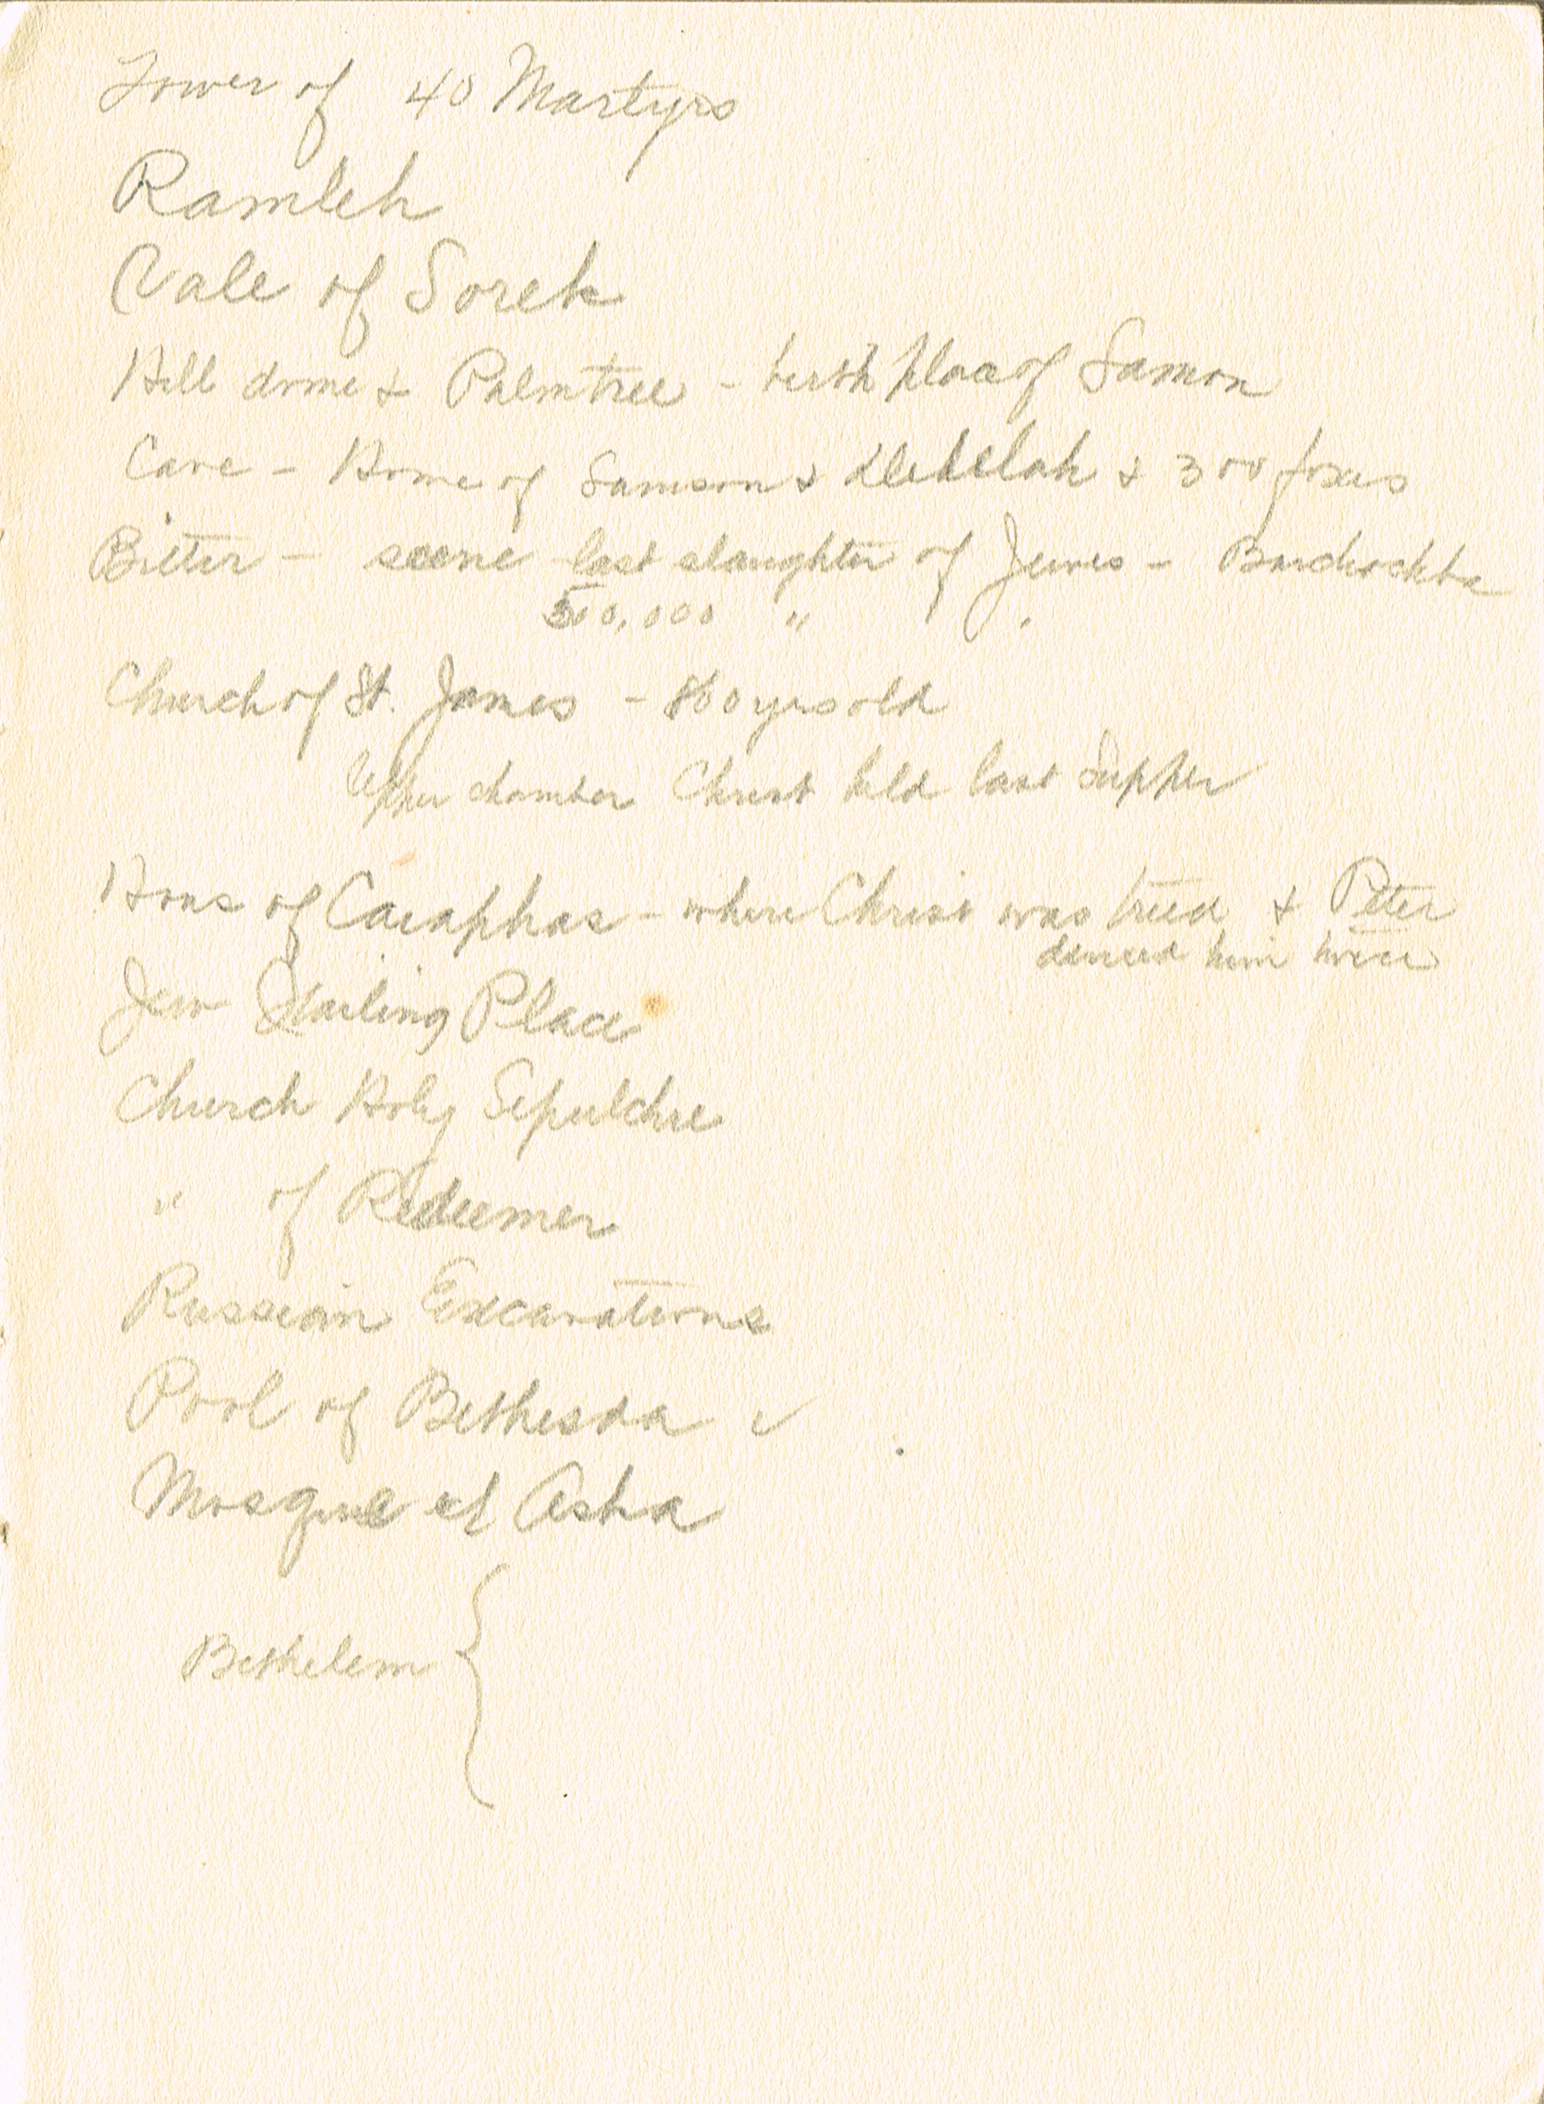 Tower of 40 Martyrs
Ramleh
Vale of Sorek
Hill dome & Palmtree - birth place of Samson
Cave - Home of Samson & Delelah & 300 foxes
Bitter - scene last slaughter of Jews - Barchochba
500,000 "
Church of St. James - 860 yrs old
Upper chamber Christ held last Supper
House of Caiaphas - where Christ was tried & Peter
denied him twice
Jew Wailing Place
Church Holy Sepulchre
" of Redeemer
Russian Excavations
Pool of Bethesda ✓
Mosque el Aska
Bethelem {